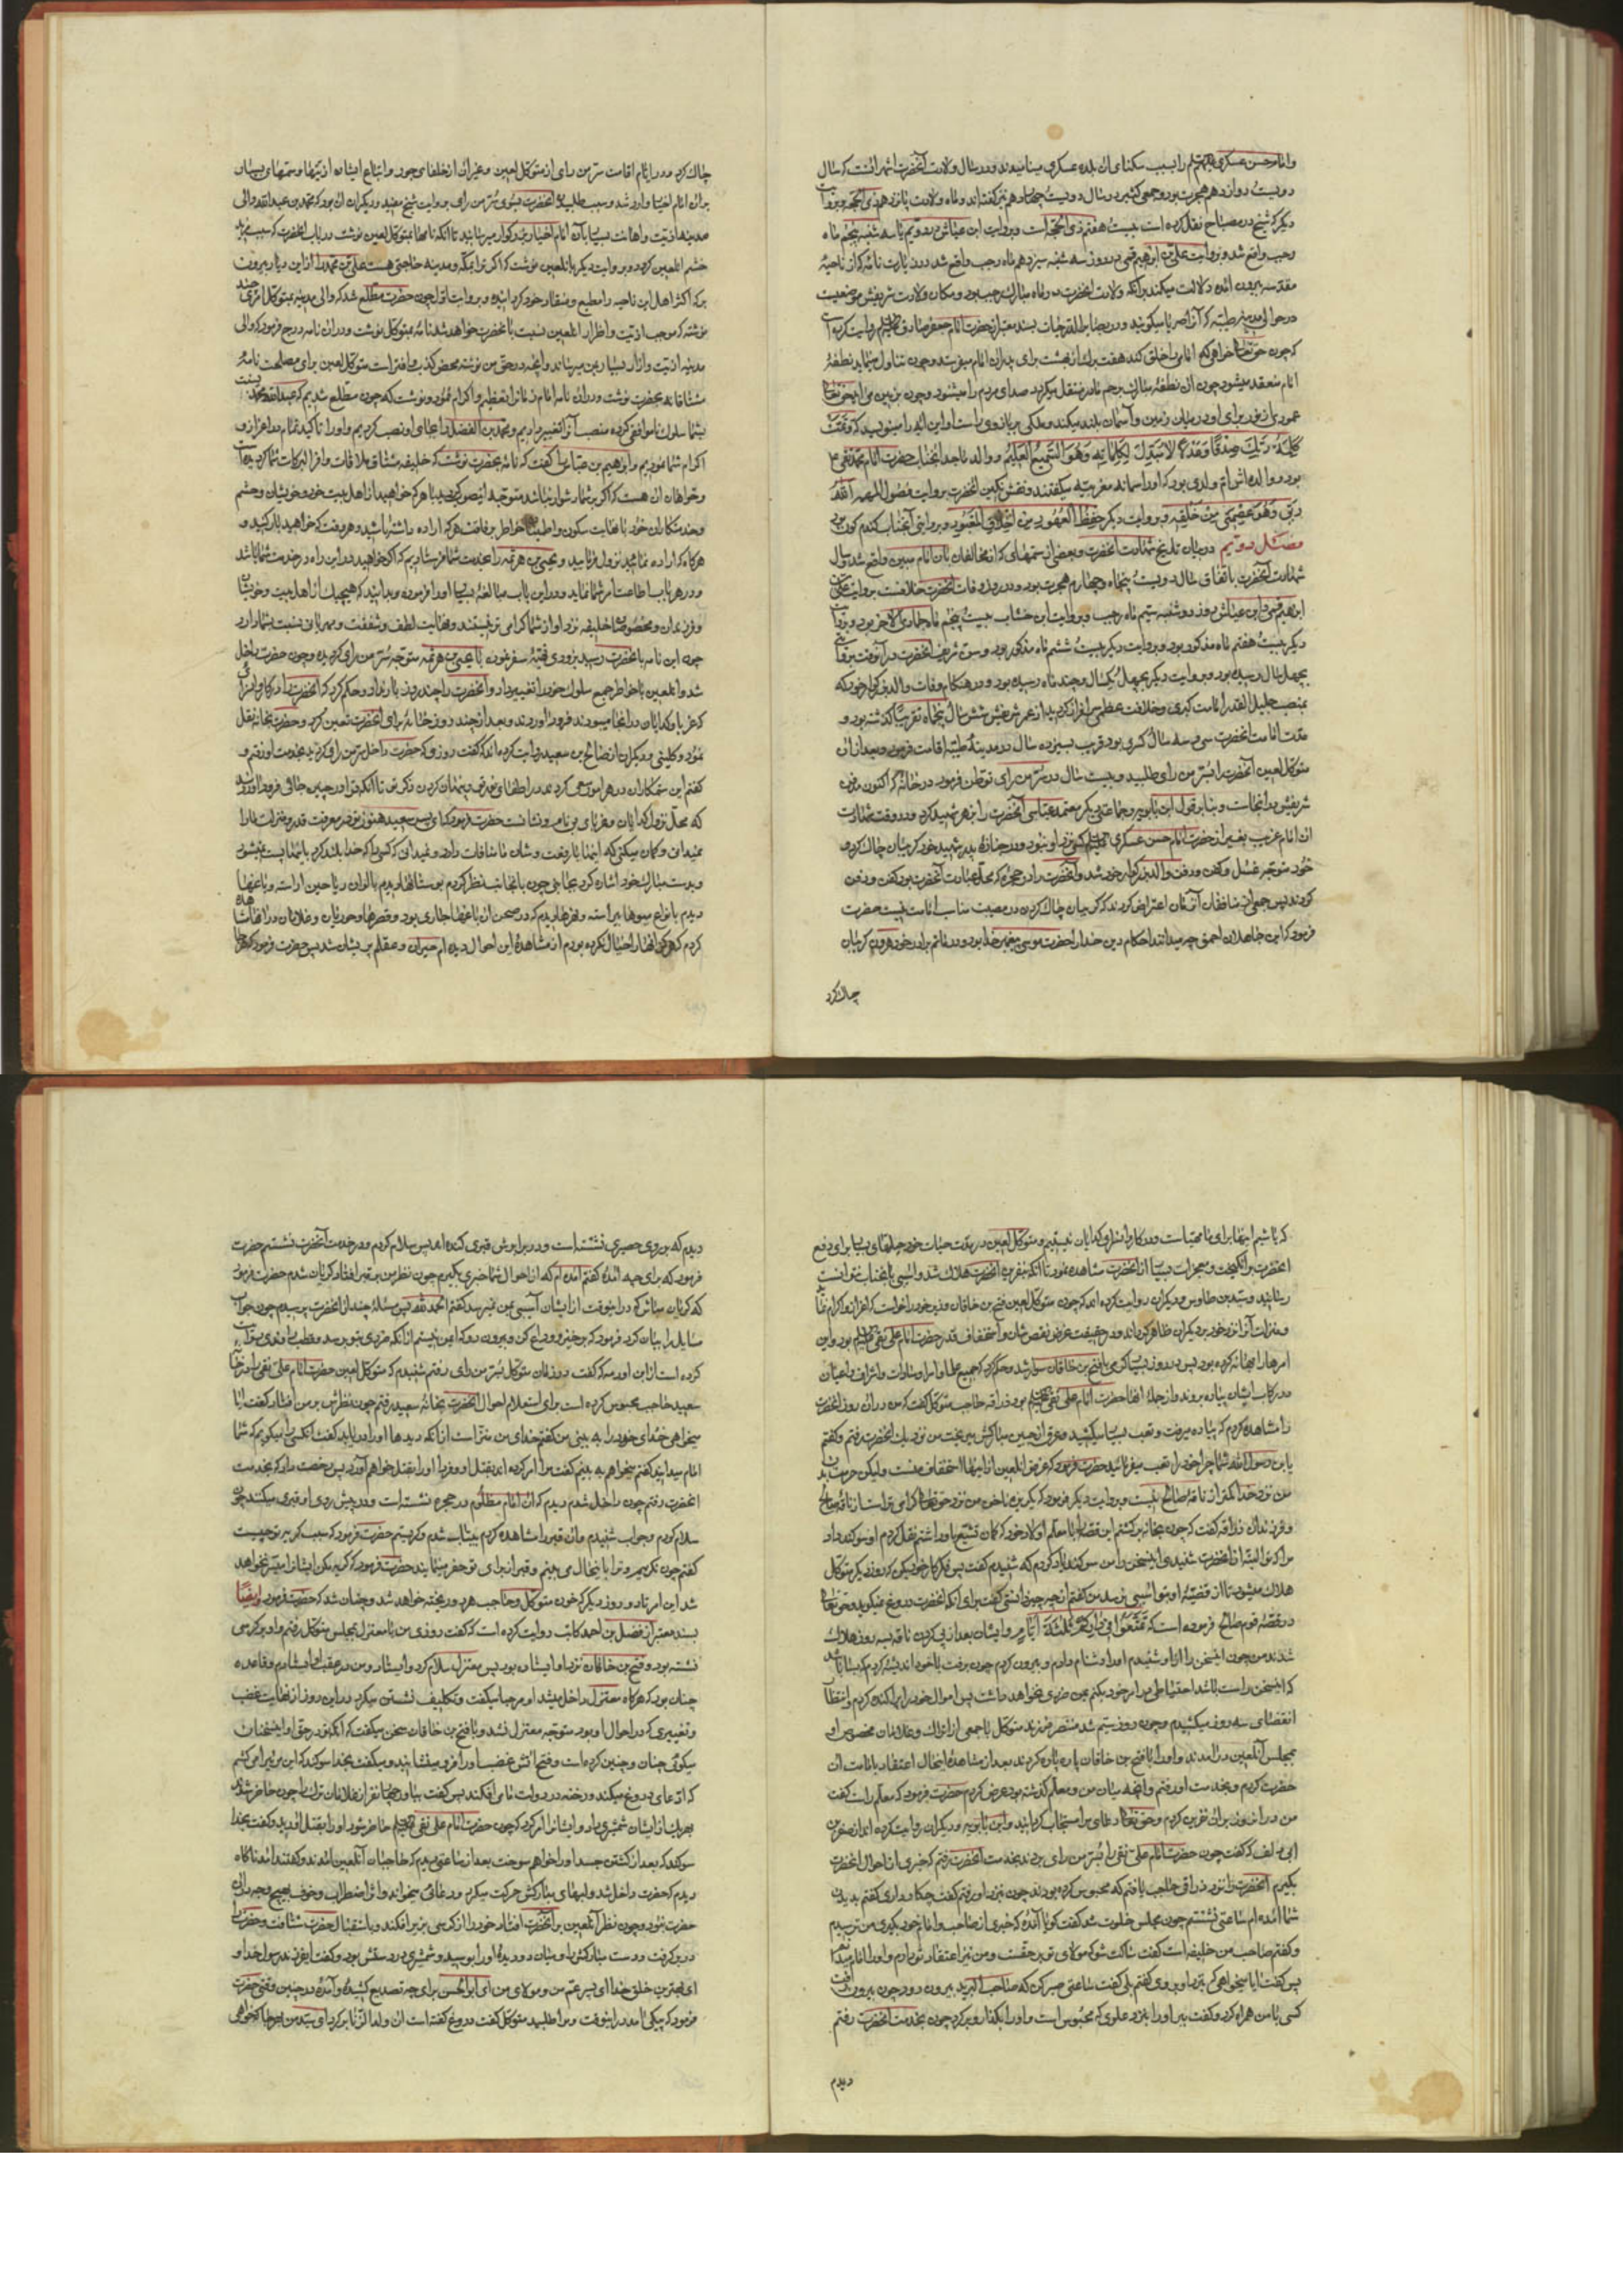 و امام حسن عسکری را بسبب سکنای آن بلده عسکری مینامیدند و در سال ولادت آنحضرت اشهر آنست که سال
دویست و دوازدهم هجرت بود و جمعی کثیر در سال دویست و چهاردهم نیز گفته‌اند و ماه ولادت پانزدهم ذی الحجه و بروایت
دیگر که شیخ در مصباح نقل کرده است بیست هفتم ذی الحجه است و بروایت ابن عیاش دویم یا سه شنبه پنجم ماه
رجب واقع شد و بروایت علی بن ابراهیم قمی در روز سه شنبه سیزدهم ماه رجب واقع شد و در زیارت نامه که از ناحیه
مقدسه بیرون آمده دلالت میکند بر آنکه ولادت آنحضرت در ماه مبارک رجب بود و مکان ولادت شریفش موضعیست
در حوالی مدینه طیبه که آنرا صریا میگویند و در بصایر الدرجات بسند معتبر از حضرت امام جعفر صادق روایت کرده است
که چون حق تعالی خواهد که امامی را خلق کند هفت برگ از بهشت برای پدر آن امام میفرستد و چون تناول مینماید نطفه
امام منعقد میشود چون آن نطفه مبارک برحم مادر منتقل میگردد صدای مردم را میشنود و چون بزمین می‌آید حق تعالی
عمودی از نور برای او در میان زمین و آسمان بلند میکند و ملکی بر بازوی راست او این آیه را مینویسد که و تمت
کلمة ربک صدقا و عدلا لا مبدل لکلماته و هو السمیع العلیم و والد ماجد آنجناب حضرت امام محمد تقی
بود و والده‌اش ام ولدی بود که او را سمانه مغربیه میگفتند و نقش نگین آنحضرت بروایت فصول المهمه الله
ربی و هو عصمتی من خلقه و بروایت دیگر حفظ العهود من اخلاق المعبود و بروایتی آنجناب گندم گون بود
فصل دویم در بیان تاریخ شهادت آنحضرت و بعضی از ستمهای که از مخالفان بآن امام مبین واقع شد سال
شهادت آنحضرت باتفاق سال دویست پنجاه و چهارم هجرت بود و در روز وفات آنحضرت خلافست بروایت علی بن
ابراهیم قمی و ابن عیاش روز دوشنبه سیم ماه رجب و بروایت ابن خشاب بیست پنجم ماه جمادی الآخر بود و بروایت
دیگر بیست هفتم ماه مذکور بود و بروایت دیگر بیست ششم ماه مذکور بود و سن شریف آنحضرت در آنوقت بروایتی
بچهل سال رسیده بود و بروایت دیگر بچهل یکسال و چند ماه رسیده بود و در هنگام وفات والد بزرگوار خود که
بمنصب جلیل القدر امامت کبری و خلافت عظمی سرافراز گردید از عمر شریفش شش سال پنجماه تقریبا گذشته بود و
مدت امامت آنحضرت سی و سه سال کسری بود قریب بسیزده سال در مدینه طیبه اقامت فرمود و بعد از آن
متوکل لعین آنحضرت را بسر من رای طلبید و بیست سال در سر من رای توطن فرمود در خانه که اکنون مدفن
شریفش در آنجاست و بنا بر قول ابن بابویه و جماعتی دیگر معتمد عباسی آنحضرت را بزهر شهید کرد و در وقت شهادت
آن امام غریب بغیر از حضرت امام حسن عسکری کسی نزد او نبود و در جنازه پدر شهید خود گریبان چاک کرد و
خود متوجه غسل و کفن و دفن والد بزرگوار خود شد و آنحضرت را در حجره که محل عبادت آنحضرت بود کفن و دفن
کردند پس جمعی از منافقان آنزمان اعتراض کردند که گریبان چاک کردن در مصیبت مناسب امامت نیست حضرت
فرمود که این جاهلان احمق چه میدانند احکام دین خدا را حضرت موسی پیغمبر خدا بود و در ماتم برادر خود هرون گریبان
چاک کرد
چاک کرد و در ایام اقامت سر من رای از متوکل لعین و غیر آن از خلفای جور و اتباع ایشان اذیتها و ستمهای بسیار
بر آن امام اخیار وارد شد و سبب طلبیدن آنحضرت بسوی سر من رای بروایت شیخ مفید و دیگران آن بود که محمد بن عبدالله والی
مدینه اذیت و اهانت بسیار بآن امام اخیار بزرگوار میرسانید تا آنکه نامها بمتوکل لعین نوشت در باب آنحضرت که سبب مزید
خشم آنلعین گردد و بروایت دیگر بآنلعین نوشت که اگر ترا بمکه و مدینه حاجتی هست علی بن محمد را از این دیار بیرون
بر که اکثر اهل این ناحیه را مطیع و منقاد خود گردانیده و بروایت اول چون حضرت مطلع شد که والی مدینه بمتوکل امری چند
نوشته که موجب اذیت و اضرار آنلعین نسبت بآنحضرت خواهد شد نامه بمتوکل نوشت و در آن نامه درج فرمود که والی
مدینه اذیت و آزار بسیار بمن میرساند و آنچه در حق من نوشته محض کذب و افتراست متوکل لعین برای مصلحت نامه
مشفقانه بحضرت نوشت و در آن نامه امام زمان را تعظیم و اکرام نمود و نوشت که چون مطلع شدیم که عبدالله محمد نسبت
بشما سلوک ناموافقی کرده منصب آنرا تغییر دادیم و محمد بن الفضل را بجای او نصب کردیم و او را تاکید تمام در اعزاز و
اکرام شما نمودیم و ابراهیم بن عباس گفت که نامه بحضرت نوشت که خلیفه مشتاق ملاقات وافر البرکات شما گردیده است
و خواهان آن هست که اگر بر شما دشوار نباشد متوجه این صوب گردید با هر که خواهید از اهل بیت خود و خویشان و حشم
و خدمتکاران خود با نهایت سکون و اطمینان خاطر برفاقت هر که اراده داشته باشید و هر وقت که خواهید بار کنید و
هرگاه که اراده نمائید نزول فرمائید و یحیی بن هرثمه را بخدمت شما فرستادیم که اگر خواهید در این راه در خدمت شما باشد
و در هر باب اطاعت امر شما نماید و در این باب مبالغه بسیار او را فرموده و بدانید که هیچیک از اهل بیت و خویشان
و فرزندان و مخصوصان خلیفه نزد او از شما گرامی‌تر نیستند و نهایت لطف و شفقت و مهربانی نسبت بشما دارد
چون این نامه بآنحضرت رسید بزودی تهیه سفر نموده با یحیی بن هرثمه متوجه سر من رای گردید و چون حضرت داخل
شد و آنلعین بآخاطر جمیع سلوک خود را تغییر داد و آنحضرت را چند روز بار نداد و حکم کرد که آنحضرت را در کاروانسرای
که غربا و گدایان در آنجا میبودند فرود آوردند و بعد از چند روز خانهٔ برای آنحضرت تعین کرد و حضرت بخانه نقل
نمود و کلینی و دیگران از صالح بن سعید روایت کرده اند که گفت روزی که حضرت داخل سر من رای گردید بخدمت او رفتم و
گفتم این ستمکاران در همه امور سعی کردند در اطفای نور تو و پنهان کردن ذکر تو تا آنکه ترا در چنین جائی فرود آوردند
که محل نزول گدایان و غربای بی نام و نشانست حضرت فرمود که ای پسر سعید هنوز تو در معرفت قدر و منزلت ما را
نمیدانی و گمان میکنی که اینها با رفعت و شان ما منافات دارد و نمیدانی که کسی را که خدا بلند کرد باینها پست نمیشود
و بدست مبارک خود اشاره کرد بجانبی چون بآنجانب نظر کردم بوستانها دیدم بالوان ریاحین آراسته و باغها
دیدم بانواع میوها پیراسته و نهرها دیدم که در صحن آن باغها جاری بود و قصرها و حوریان و غلامان در آنها مشاهده
کردم که هرگز نظیر آنها را خیال نکرده بودم از مشاهدهٔ این احوال دیده ام حیران و عقلم پریشان شد پس حضرت فرمود که هر جا
که باشیم اینها برای ما مهیاست و در کاروانسرای گدایان نیستیم و متوکل لعین در مدت حیات خود حیلهای بسیار برای دفع
آنحضرت برانگیخت و معجزات بسیار از آنحضرت مشاهده نمود تا آنکه بنفرین آنحضرت هلاک شد و آسیبی بآنجناب نتوانست
رسانید و سید بن طاوس و دیگران روایت کرده اند که چون متوکل لعین فتح بن خاقان وزیر خود را خواست که اعزاز و اکرام نماید
و منزلت آنرا نزد خود بر دیگران ظاهر گرداند و در حقیقت غرض نقص شان و استخفاف قدر حضرت امام علی نقی بود و این
امر را بهانه کرده بود پس در روز بسیار گرمی با فتح بن خاقان سوار شد و حکم کرد که جمیع علما و امرا و سادات و اشراف و اعیان
در رکاب ایشان پیاده بروند و از جملهٔ آنها حضرت امام علی نقی بود زراقه حاجب متوکل گفت که من در آن روز آنحضرت
را مشاهده کردم که پیاده میرفت و تعب بسیار میکشید و عرق از جبین مبارکش میریخت من نزدیک آنحضرت رفتم و گفتم
یا بن رسول الله شما چرا خود را تعب میفرمائید حضرت فرمود که غرض آنلعین از اینها استخفاف منست ولیکن حرمت بدن
من نزد خدا کمتر از ناقه صالح نیست و بروایت دیگر فرمود که یک ریزه ناخن من نزد حق تعالی گرامی تر است از ناقه صالح
و فرزندان زراقه گفت که چون بخانه برگشتم این قصه را با معلم اولاد خود که گمان تشیع باو داشتم نقل کردم او سوگند داد
مرا که تو البته از آنحضرت شنیدی این سخن را من سوگند یاد کردم که شنیدم گفت پس فکر کار خود بکن که سه روز دیگر متوکل
هلاک میشود تا از قضیهٔ او بتو آسیبی نرسد من گفتم از چه چیز دانستی گفت برای آنکه آنحضرت دروغ نمیگوید و حق تعالی
در قصهٔ قوم صالح فرموده است که تمتعوا فی دارکم ثلثة ایام و ایشان بعد از پی کردن ناقه بسه روز هلاک
شدند من چون این سخن را از او شنیدم او را دشنام دادم و بیرون کردم چون برفت با خود اندیشه کردم که بسا باشد
که این سخن راست باشد اگر احتیاطی در امر خود بکنم بمن ضرری نخواهد داشت پس اموال خود را پراکنده کردم و انتظار
انقضای سه روز میکشیدم و چون روز سیم شد منتصر فرزند متوکل با جمعی از اتراک و غلامان مخصوص او
بمجلس آنلعین درآمدند و او را با فتح بن خاقان پاره پاره کردند بعد از مشاهدهٔ اینحال اعتقاد بامامت آن
حضرت کردم و بخدمت او رفتم و آنچه میان من و معلم گذشته بود عرض کردم حضرت فرمود که معلم راست گفت
من در آنروز بر آن نفرین کردم و حق تعالی دعای مرا مستجاب گردانید و ابن بابویه و دیگران روایت کرده اند از صقر بن
ابی دلف که گفت چون حضرت امام علی نقی را بسر من رای بردند بخدمت آنحضرت رفتم که خبری از احوال آنحضرت
بگیرم آنحضرت را نزد زراقی حاجب یافتم که محبوس کرده بودند چون نزد او رفتم گفت چکار داری گفتم بدیدن
شما آمده ام ساعتی نشستم چون مجلس خلوت شد گفت گویا آمدهٔ که خبری از صاحب و امام خود بگیری من ترسیدم
و گفتم صاحب من خلیفه است گفت ساکت شو که مولای تو بر حقست و من نیز اعتقاد تو دارم و او را امام میدانم
پس گفت آیا میخواهی که نزد او بروی گفتم بلی گفت ساعتی صبر کن که صاحب البرید بیرون رود چون بیرون رفت
کسی با من همراه کرد و گفت ببر او را بنزد علوی که محبوس است و او را بگذار و برگرد چون بخدمت آنحضرت رفتم
دیدم
دیدم که بر روی حصیری نشسته است و در برابرش قبری کنده اند پس سلام کردم و در خدمت آنحضرت نشستم حضرت
فرمود که برای چه آمدهٔ گفتم آمده ام که از احوال شما خبری بگیرم چون نظر من بر قبر افتاد گریان شدم حضرت فرمود
که گریان مباش که در اینوقت از ایشان آسیبی بمن نمیرسد گفتم الحمد لله پس مسئلهٔ چند از آنحضرت پرسیدم چون جواب
مسایل را بیان کرد فرمود که برخیز و وداع کن و بیرون رو که ایمن نیستم از آنکه ضرری بتو برسد و قطب راوندی روایت
کرده است از ابن اورمه که گفت در زمان متوکل بسر من رای رفتم شنیدم که متوکل لعین حضرت امام علی نقی را در خانه
سعید حاجب محبوس کرده است برای استعلام احوال آنحضرت بخانهٔ سعید رفتم چون نظرش بر من افتاد گفت آیا
میخواهی خدای خود را به بینی من گفتم خدای من منزه است از آنکه دیدها او را دریابد گفت آنکس را میگویم که شما
امام میدانید گفتم میخواهم به بینم گفت مرا امر کرده اند بقتل او و فردا او را بقتل خواهم آورد پس رخصت داد که بخدمت
آنحضرت رفتم چون داخل شدم دیدم که آن امام مظلوم در حجره نشسته است و در پیش روی او قبری میکنند چون
سلام کردم و جواب شنیدم و آن قبر را مشاهده کردم بیتاب شدم و گریستم حضرت فرمود که سبب گریه تو چیست
گفتم چون نگریم و ترا باینحال می بینم و قبر از برای تو حفر مینمایند حضرت فرمود که گریه مکن ایشانرا میسر نخواهد
شد این امر تا دو روز دیگر که خون متوکل و حاجب هر دو ریخته خواهد شد و چنان شد که حضرت فرمود و ایضا
بسند معتبر از فضل بن احمد کاتب روایت کرده است که گفت روزی من با معتز بمجلس متوکل رفتم و او بر کرسی
نشسته بود و فتح بن خاقان نزد او ایستاده بود پس معتز سلام کرد و ایستاد و من در عقب او ایستادم و قاعده
چنان بود که هرگاه معتز داخل میشد او مرحبا میگفت و تکلیف نشستن میکرد در این روز از نهایت غضب
و تغییری که در احوال او بود متوجه معتز نشد و با فتح بن خاقان سخن میگفت که آنکه تو در حق او این سخنان
میگوئی چنان و چنین کرده است و فتح آتش غضب او را فرو مینشانید و میگفت بخدا سوگند که این مرائی را میکشم
که ادعای دروغ میکند و رخنه در دولت ما می افکند پس گفت بیاور چهار نفر از غلامان ترک را چون حاضر شدند
بهریک از ایشان شمشیری داد و ایشانرا امر کرد که چون حضرت امام علی نقی حاضر شود او را بقتل آورید و گفت بخدا
سوگند که بعد از کشتن جسد او را خواهم سوخت بعد از ساعتی دیدم که حاجبان آنلعین آمدند و گفتند آمد ناگاه
دیدم که حضرت داخل شد و لبهای مبارکش حرکت میکرد و دعائی میخواند و اثر اضطراب و خوف بهیچوجه در آن
حضرت نبود و چون نظر آنلعین بر آنحضرت افتاد خود را از کرسی بزیر افکند و باستقبال حضرت شتافت و حضرت را
در بر گرفت و دست مبارکش را و میان دو دیدهٔ او را بوسید و شمشیری در دستش بود و گفت ای فرزند رسول خدا و
ای بهترین خلق خدا ای پسر عم من و مولای من ای ابو الحسن برای چه تصدیع کشیده و آمدهٔ در چنین وقتی حضرت
فرمود که پیک آمد در اینوقت و مرا طلبید متوکل گفت دروغ گفته است آن ولد الزنا برگرد ای سید من بهر جا که خواهی